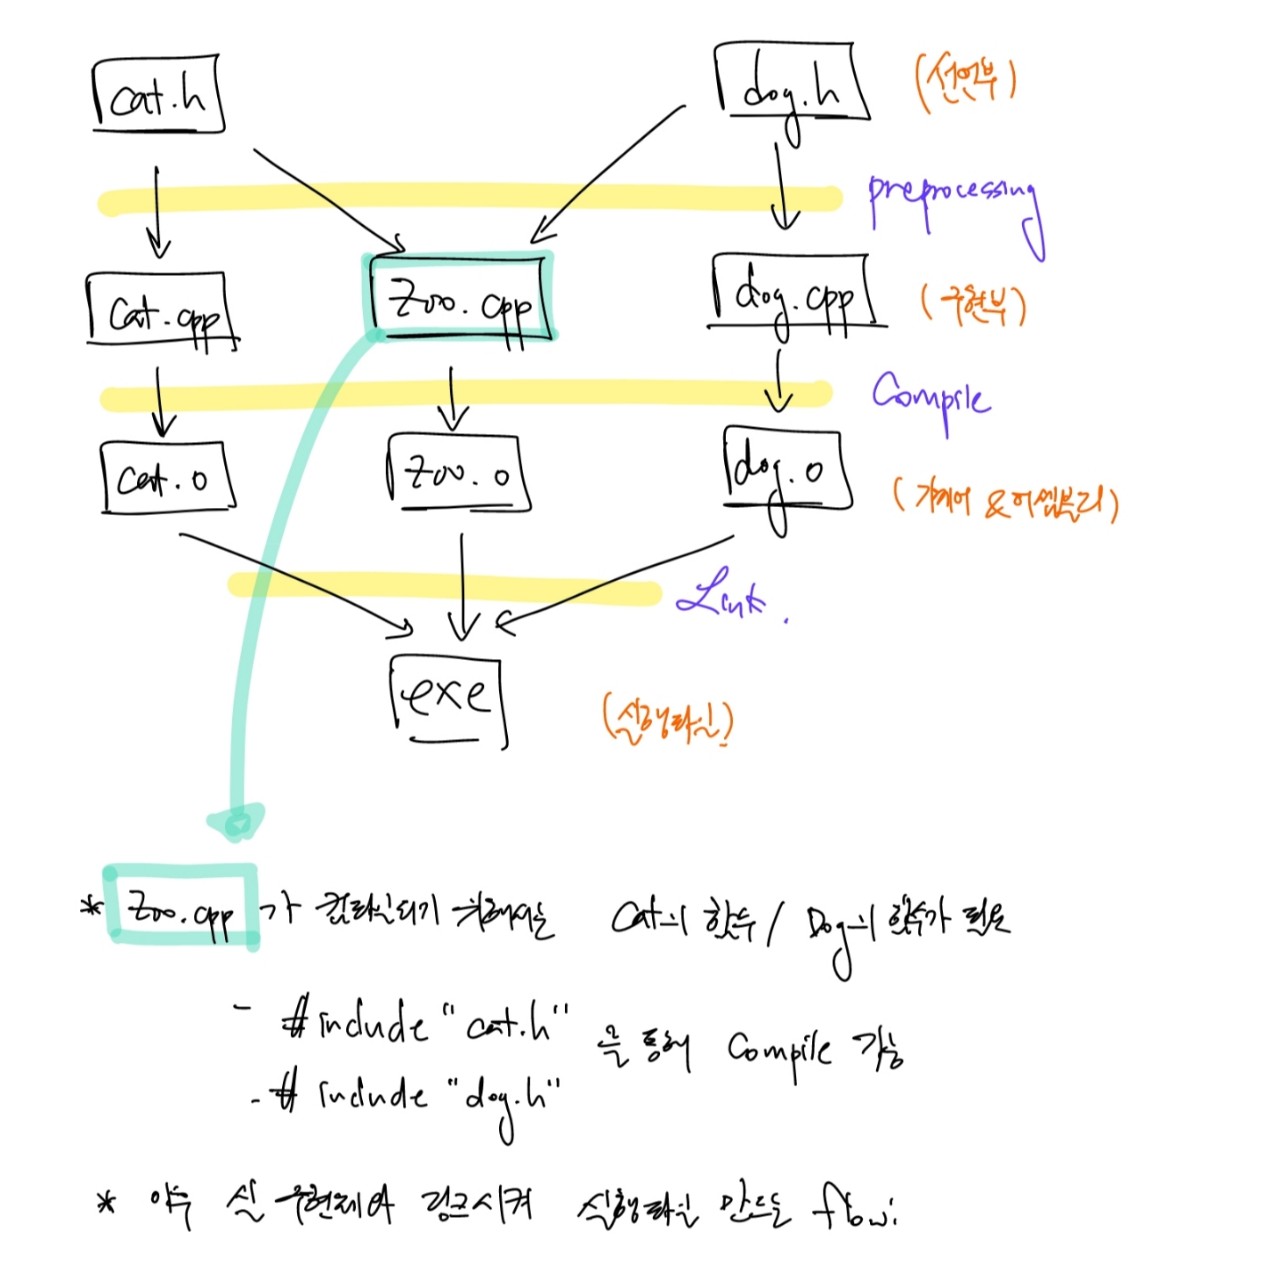 cat.h
dog.h
(선언부)
preprocessing
cat.cpp
Zoo.cpp
dog.cpp
(구현부)
Compile
cat.o
Zoo.o
dog.o
(기계어 & 어셈블리)
Link.
exe
(실행파일)
* Zoo.cpp 가 컴파일되기 위해서는 Cat의 함수 / Dog의 함수가 필요
- #include "cat.h"
을 통해 Compile 가능
- #include "dog.h"
* 이후 실 구현체와 링크시켜 실행파일 만드는 flow.